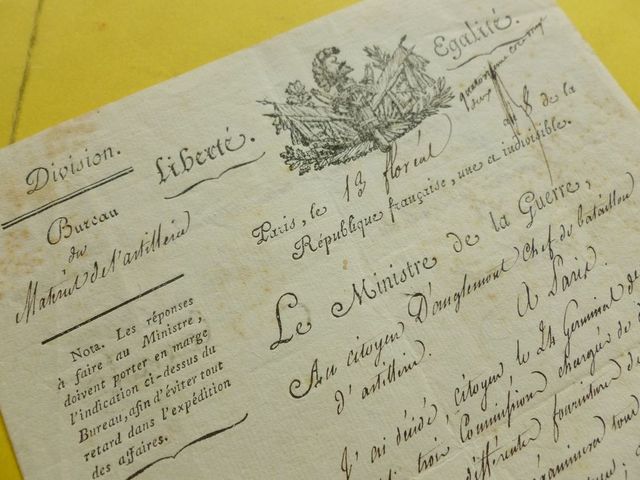 Division.
Liberté.
Egalité.
Bureau
du
Matériel de l'artillerie
Nota. Les réponses
à faire au Ministre,
doivent porter en marge
l'indication ci-dessus du
Bureau, afin d'éviter tout
retard dans l'expédition
des affaires.
Paris, le 13 floréal an 8 de la
République française, une et indivisible.
Le Ministre de la Guerre,
Au citoyen Danglemont Chef de bataillon
d'artillerie. A Paris.
J'ai décidé, citoyen le 24 Germinal d
trois Commission chargée de
différentes fourniture d
examinera tou